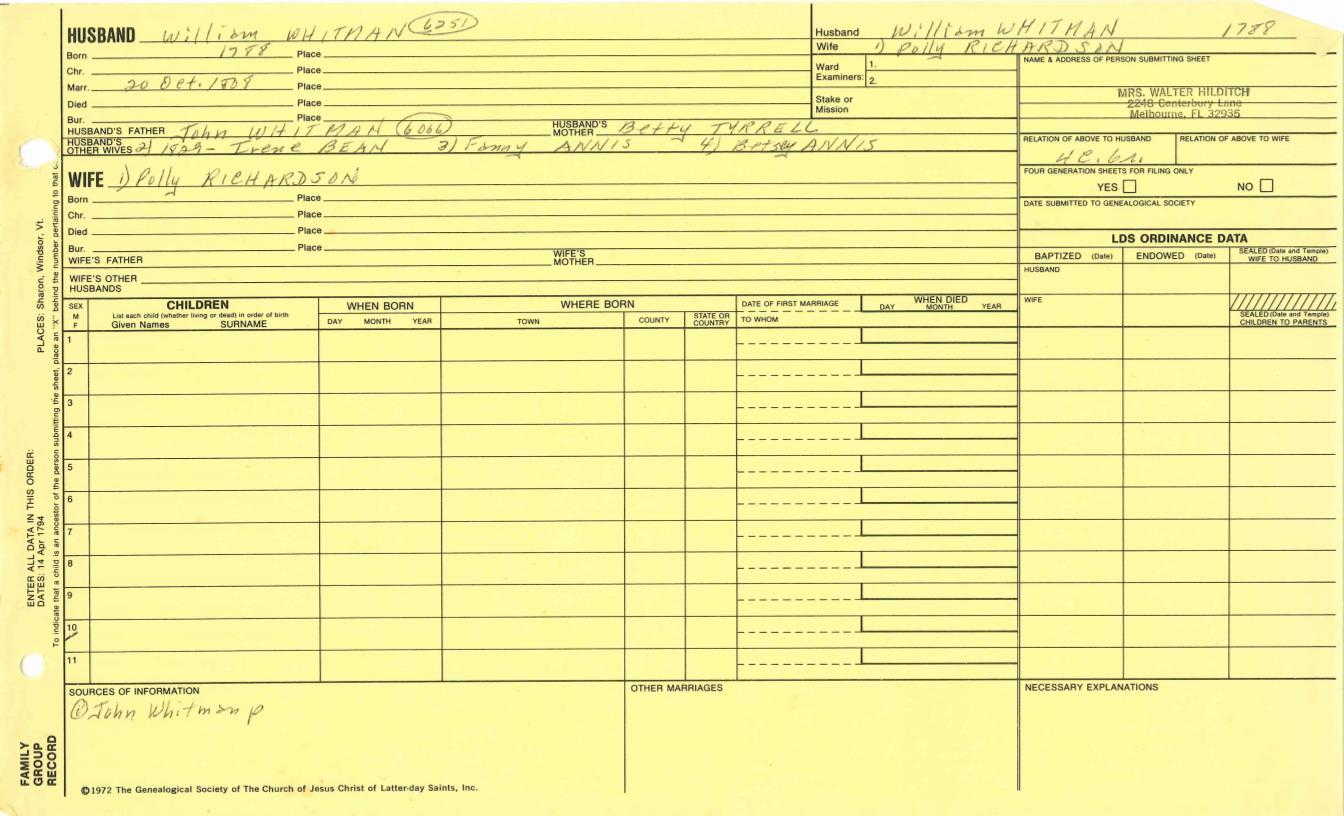 HUSBAND William WHITMAN 6251
Born 1788 Place
Chr. Place
Marr. 20 Oct. 1808 Place
Died Place
Bur. Place
HUSBAND'S FATHER John WHITMAN 6066 HUSBAND'S MOTHER Betty TYRRELL
HUSBAND'S OTHER WIVES 2) 1829- Irene BEAN 3) Fanny ANNIS 4) Betsey ANNIS
Husband William WHITMAN 1788
Wife 1) Polly RICHARDSON
Ward Examiners: 1.
2.
Stake or Mission
NAME & ADDRESS OF PERSON SUBMITTING SHEET
MRS. WALTER HILDITCH
2248 Canterbury Lane
Melbourne, FL 32935
RELATION OF ABOVE TO HUSBAND RELATION OF ABOVE TO WIFE
FOUR GENERATION SHEETS FOR FILING ONLY
YES NO
DATE SUBMITTED TO GENEALOGICAL SOCIETY
WIFE 1) Polly RICHARDSON
Born Place
Chr. Place
Died Place
Bur. Place
WIFE'S FATHER WIFE'S MOTHER
WIFE'S OTHER HUSBANDS
LDS ORDINANCE DATA
BAPTIZED (Date) ENDOWED (Date) SEALED (Date and Temple) WIFE TO HUSBAND
HUSBAND
WIFE
SEALED (Date and Temple) CHILDREN TO PARENTS
SEX M F
CHILDREN
List each child (whether living or dead) in order of birth
Given Names SURNAME
WHEN BORN
DAY MONTH YEAR
WHERE BORN
TOWN COUNTY STATE OR COUNTRY
DATE OF FIRST MARRIAGE
TO WHOM
WHEN DIED
DAY MONTH YEAR
1
2
3
4
5
6
7
8
9
10
11
SOURCES OF INFORMATION
① John Whitman p
OTHER MARRIAGES
NECESSARY EXPLANATIONS
©1972 The Genealogical Society of The Church of Jesus Christ of Latter-day Saints, Inc.
FAMILY GROUP RECORD
ENTER ALL DATA IN THIS ORDER:
DATES: 14 Apr 1794 PLACES: Sharon, Windsor, Vt.
To indicate that a child is an ancestor of the person submitting the sheet, place an "X" behind the number pertaining to that